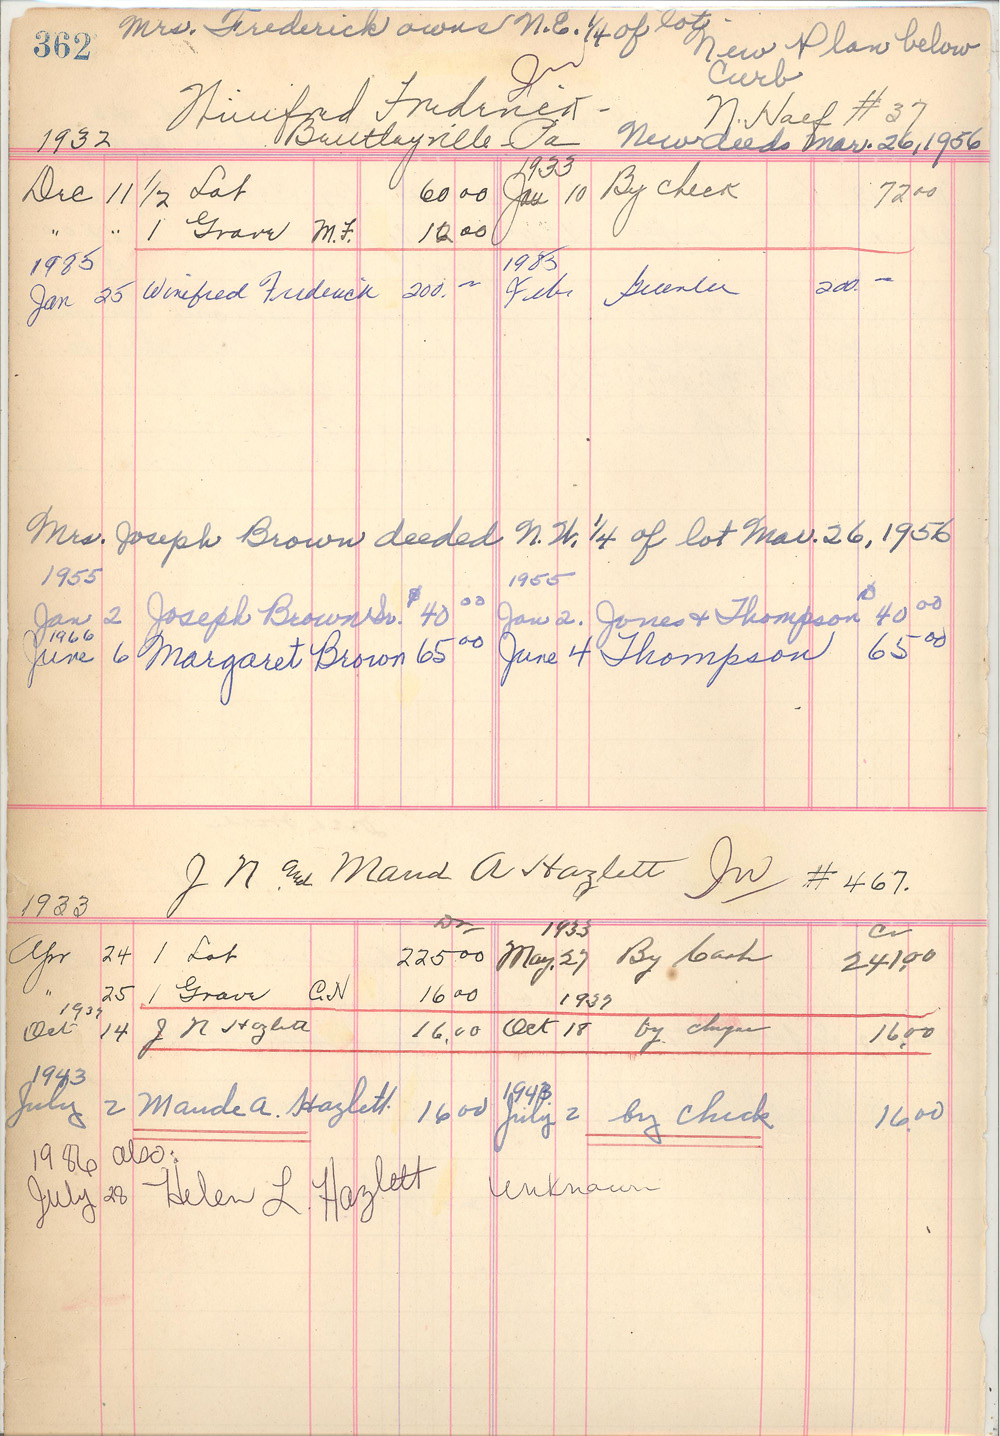 362
Mrs. Frederick owns N.E. 1/4 of lot.
New Plan below
Curb
Winifred Frederick -
N. Half # 37
1932
Bentleyville Pa
New deeds Mar. 26, 1956
1933
Dec 11 1/2 Lot 60 00 Jan 10 By check 72 00
" " 1 Grave M.F. 12 00
1985 1985
Jan 25 Winifred Frederick 200. - Feb. 200. -
Mrs. Joseph Brown deeded N.W. 1/4 of lot Mar. 26, 1956
1955 1955
Jan 2 Joseph Brown Sr. $40 00 Jan 2. Jones & Thompson $40 00
1966
June 6 Margaret Brown 65 00 June 4 Thompson 65 00
J N and Maud A Hazlett # 467.
1933
Dr 1933 Cr
Apr 24 1 Lot 225 00 May. 27 By Cash 241.00
" 25 1 Grave C.N 16 00
1937 1937
Oct 14 J N Hazlett 16.00 Oct 18 by cheque 16.00
1943 1943.
July 2 Maude A. Hazlett. 16 00 July 2 by Check 16.00
1986 also:
July 28 Helen L. Hazlett unknown